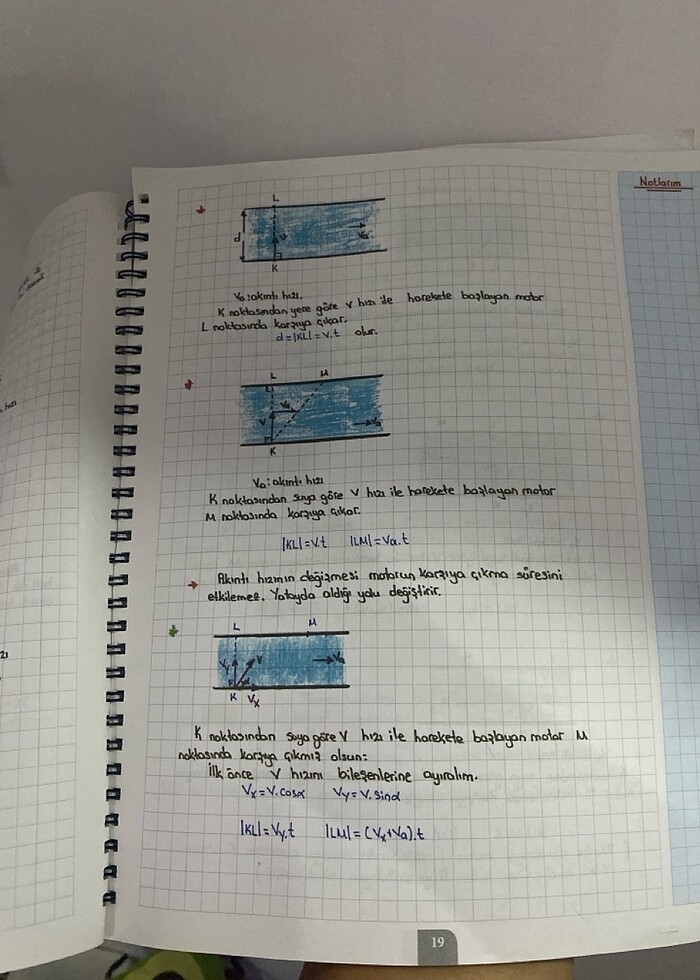 Notlarım
L
d
V
Va
K
Va: akıntı hızı.
K noktasından yere göre V hızı ile harekete başlayan motor
L noktasında karşıya çıkar.
d=|KL|=V.t olur.
L M
Va
V
Va
K
Va: akıntı hızı
K noktasından suya göre V hızı ile harekete başlayan motor
M noktasında karşıya çıkar.
|KL|=V.t |LM|=Va.t
Akıntı hızının değişmesi motorun karşıya çıkma süresini
etkilemez. Yatayda aldığı yolu değiştirir.
L M
Vy V Va
α
K Vx
K noktasından suya göre V hızı ile harekete başlayan motor M
noktasında karşıya çıkmış olsun:
İlk önce V hızını bileşenlerine ayıralım.
Vx=V.cosα Vy=V.sinα
|KL|=Vy.t |LM|=(Vx+Va).t
19